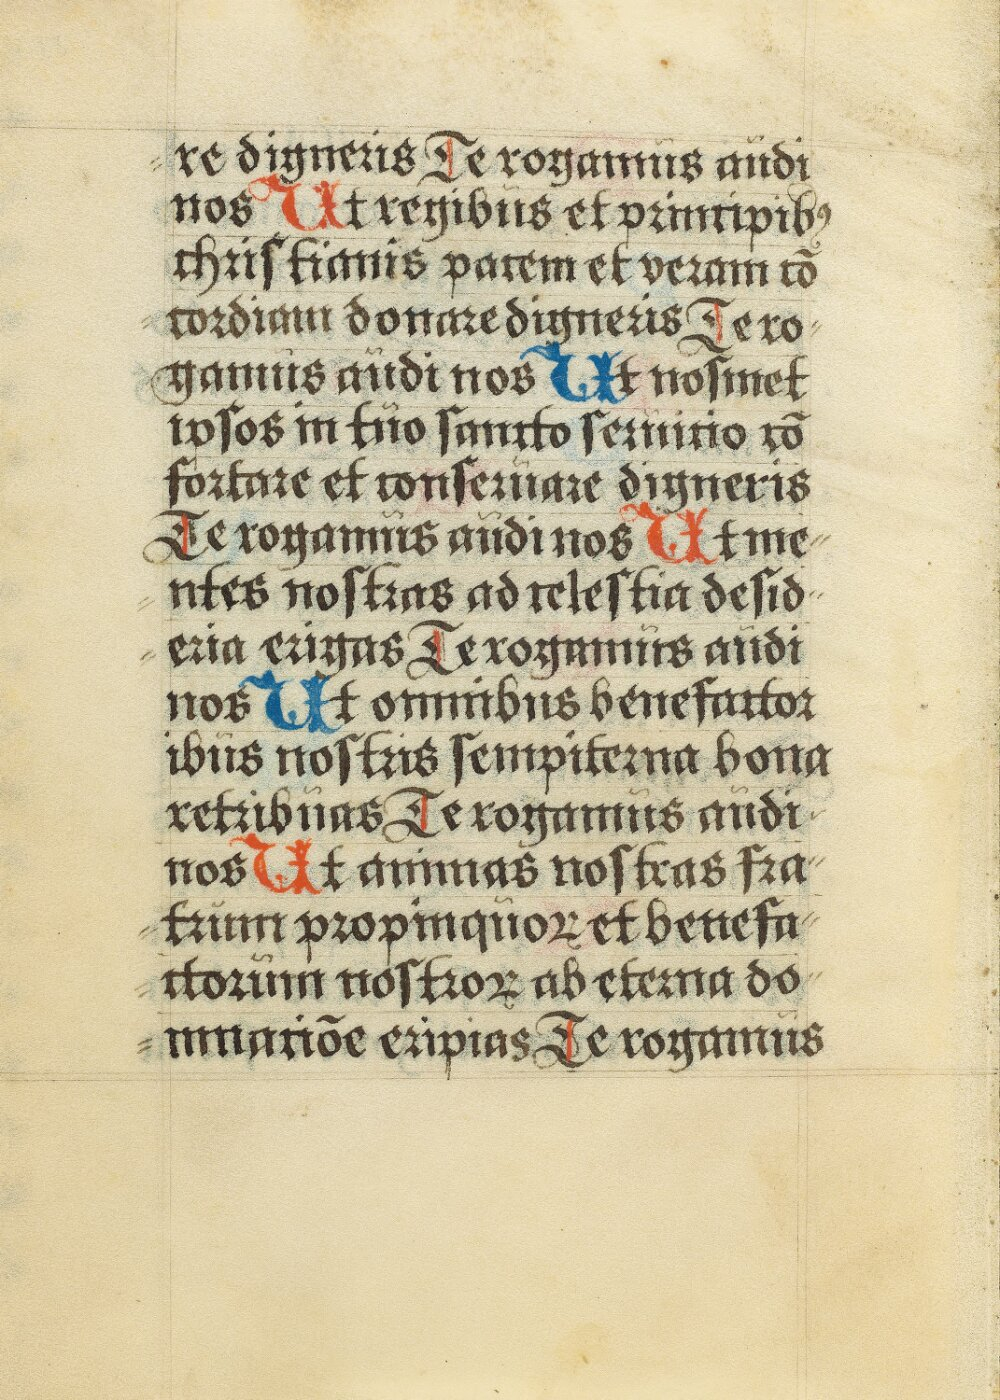 re digneris Te rogamus audi
nos Ut regibus et principibꝰ
christianis pacem et veram cō
cordiam donare digneris Te ro-
gamus audi nos Ut nosmet
ipsos in tuo sancto seruitio cō
fortare et conseruare digneris
Te rogamus audi nos Ut me-
ntes nostras ad celestia desid-
eria erigas Te rogamus audi
nos Ut omnibus benefactor
ibus nostris sempiterna bona
retribuas Te rogamus audi-
nos Ut animas nostras fra-
trum propinquoꝝ et benefa-
ctorum nostroꝝ ab eterna do-
mnatiōe eripias Te rogamus